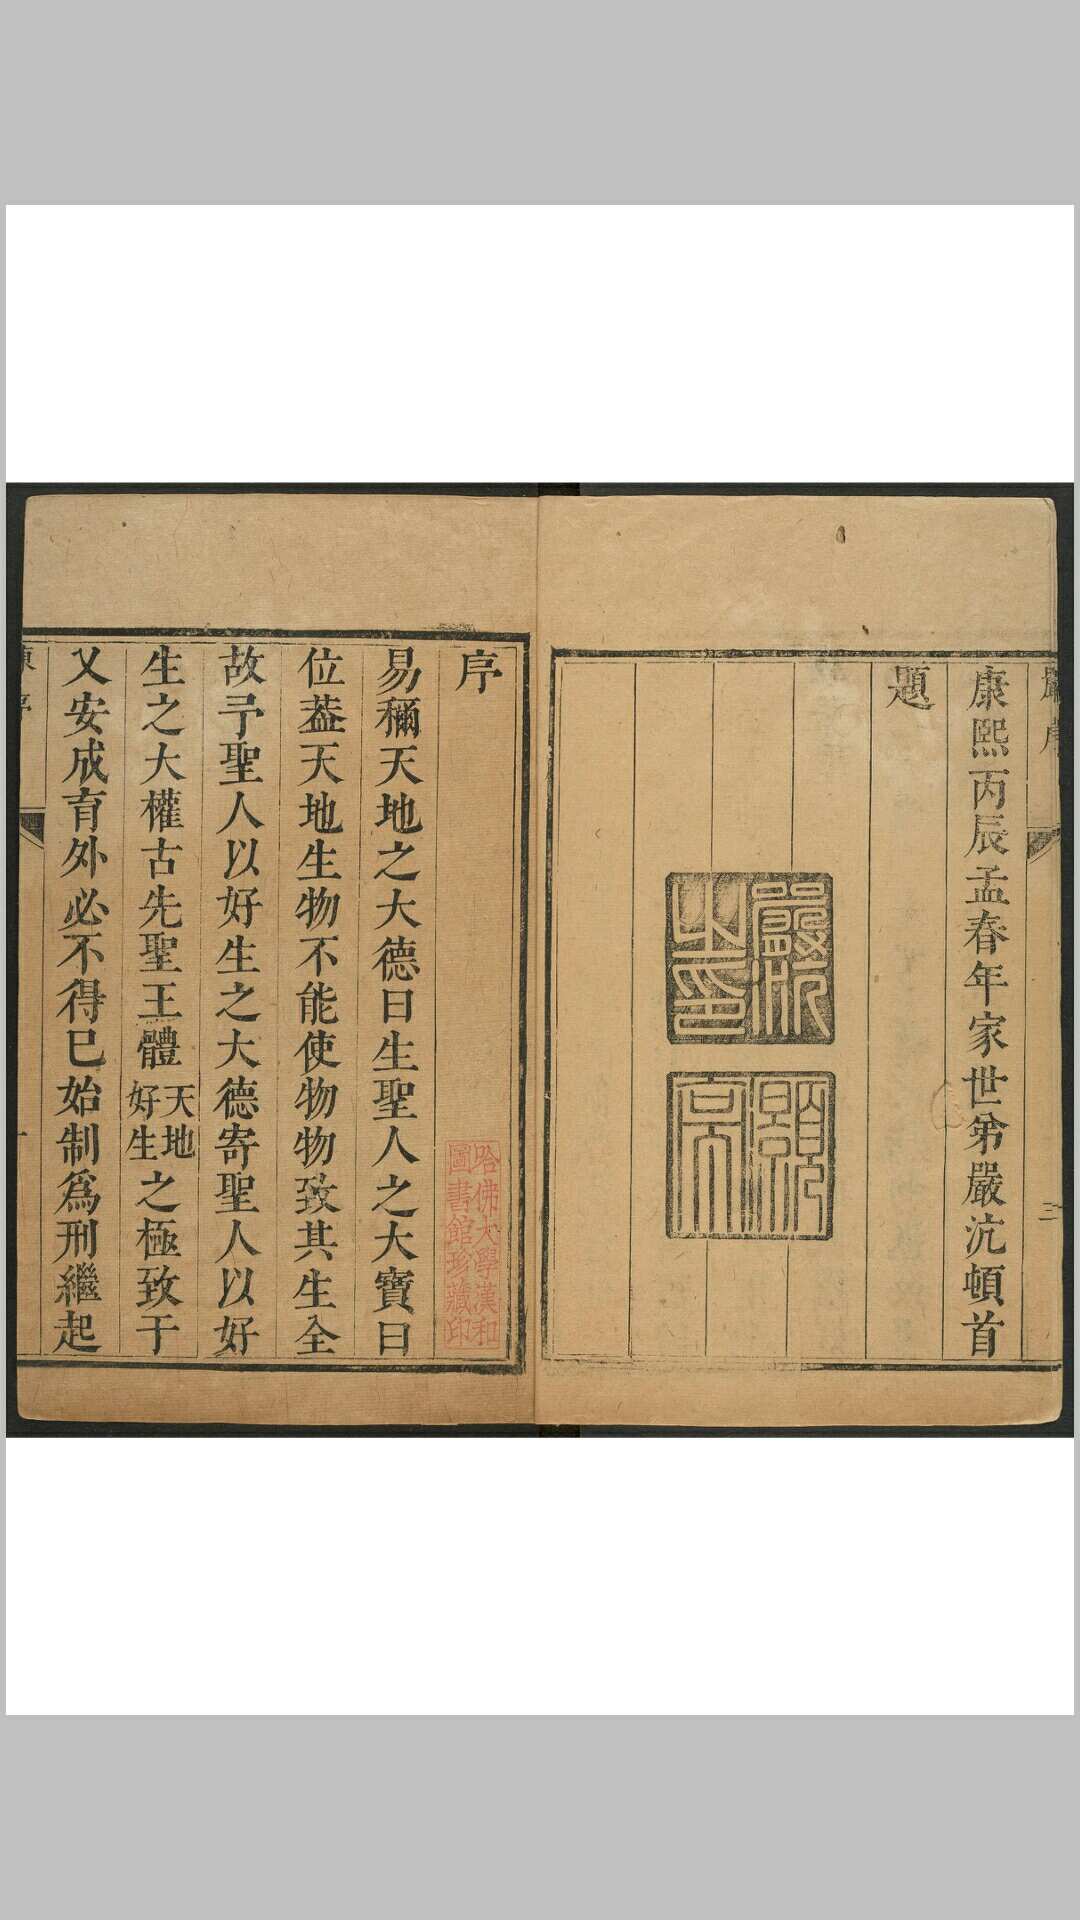 嚴序
三
康熙丙辰孟春年家世弟嚴沆頓首
題
嚴沆之印
灝亭
序
哈佛大學漢和圖書館珍藏印
易稱天地之大德曰生聖人之大寶曰
位葢天地生物不能使物物致其生全
故予聖人以好生之大德寄聖人以好
生之大權古先聖王體天地好生之極致于
乂安成育外必不得已始制爲刑繼起
一